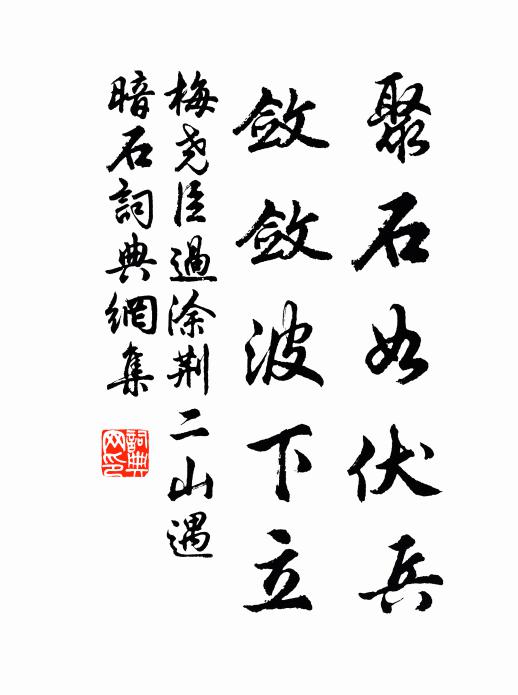 聚石如伏兵
斂斂波下立
梅尧臣過涂荆二山遇
暗石詞典網集
詞典网印